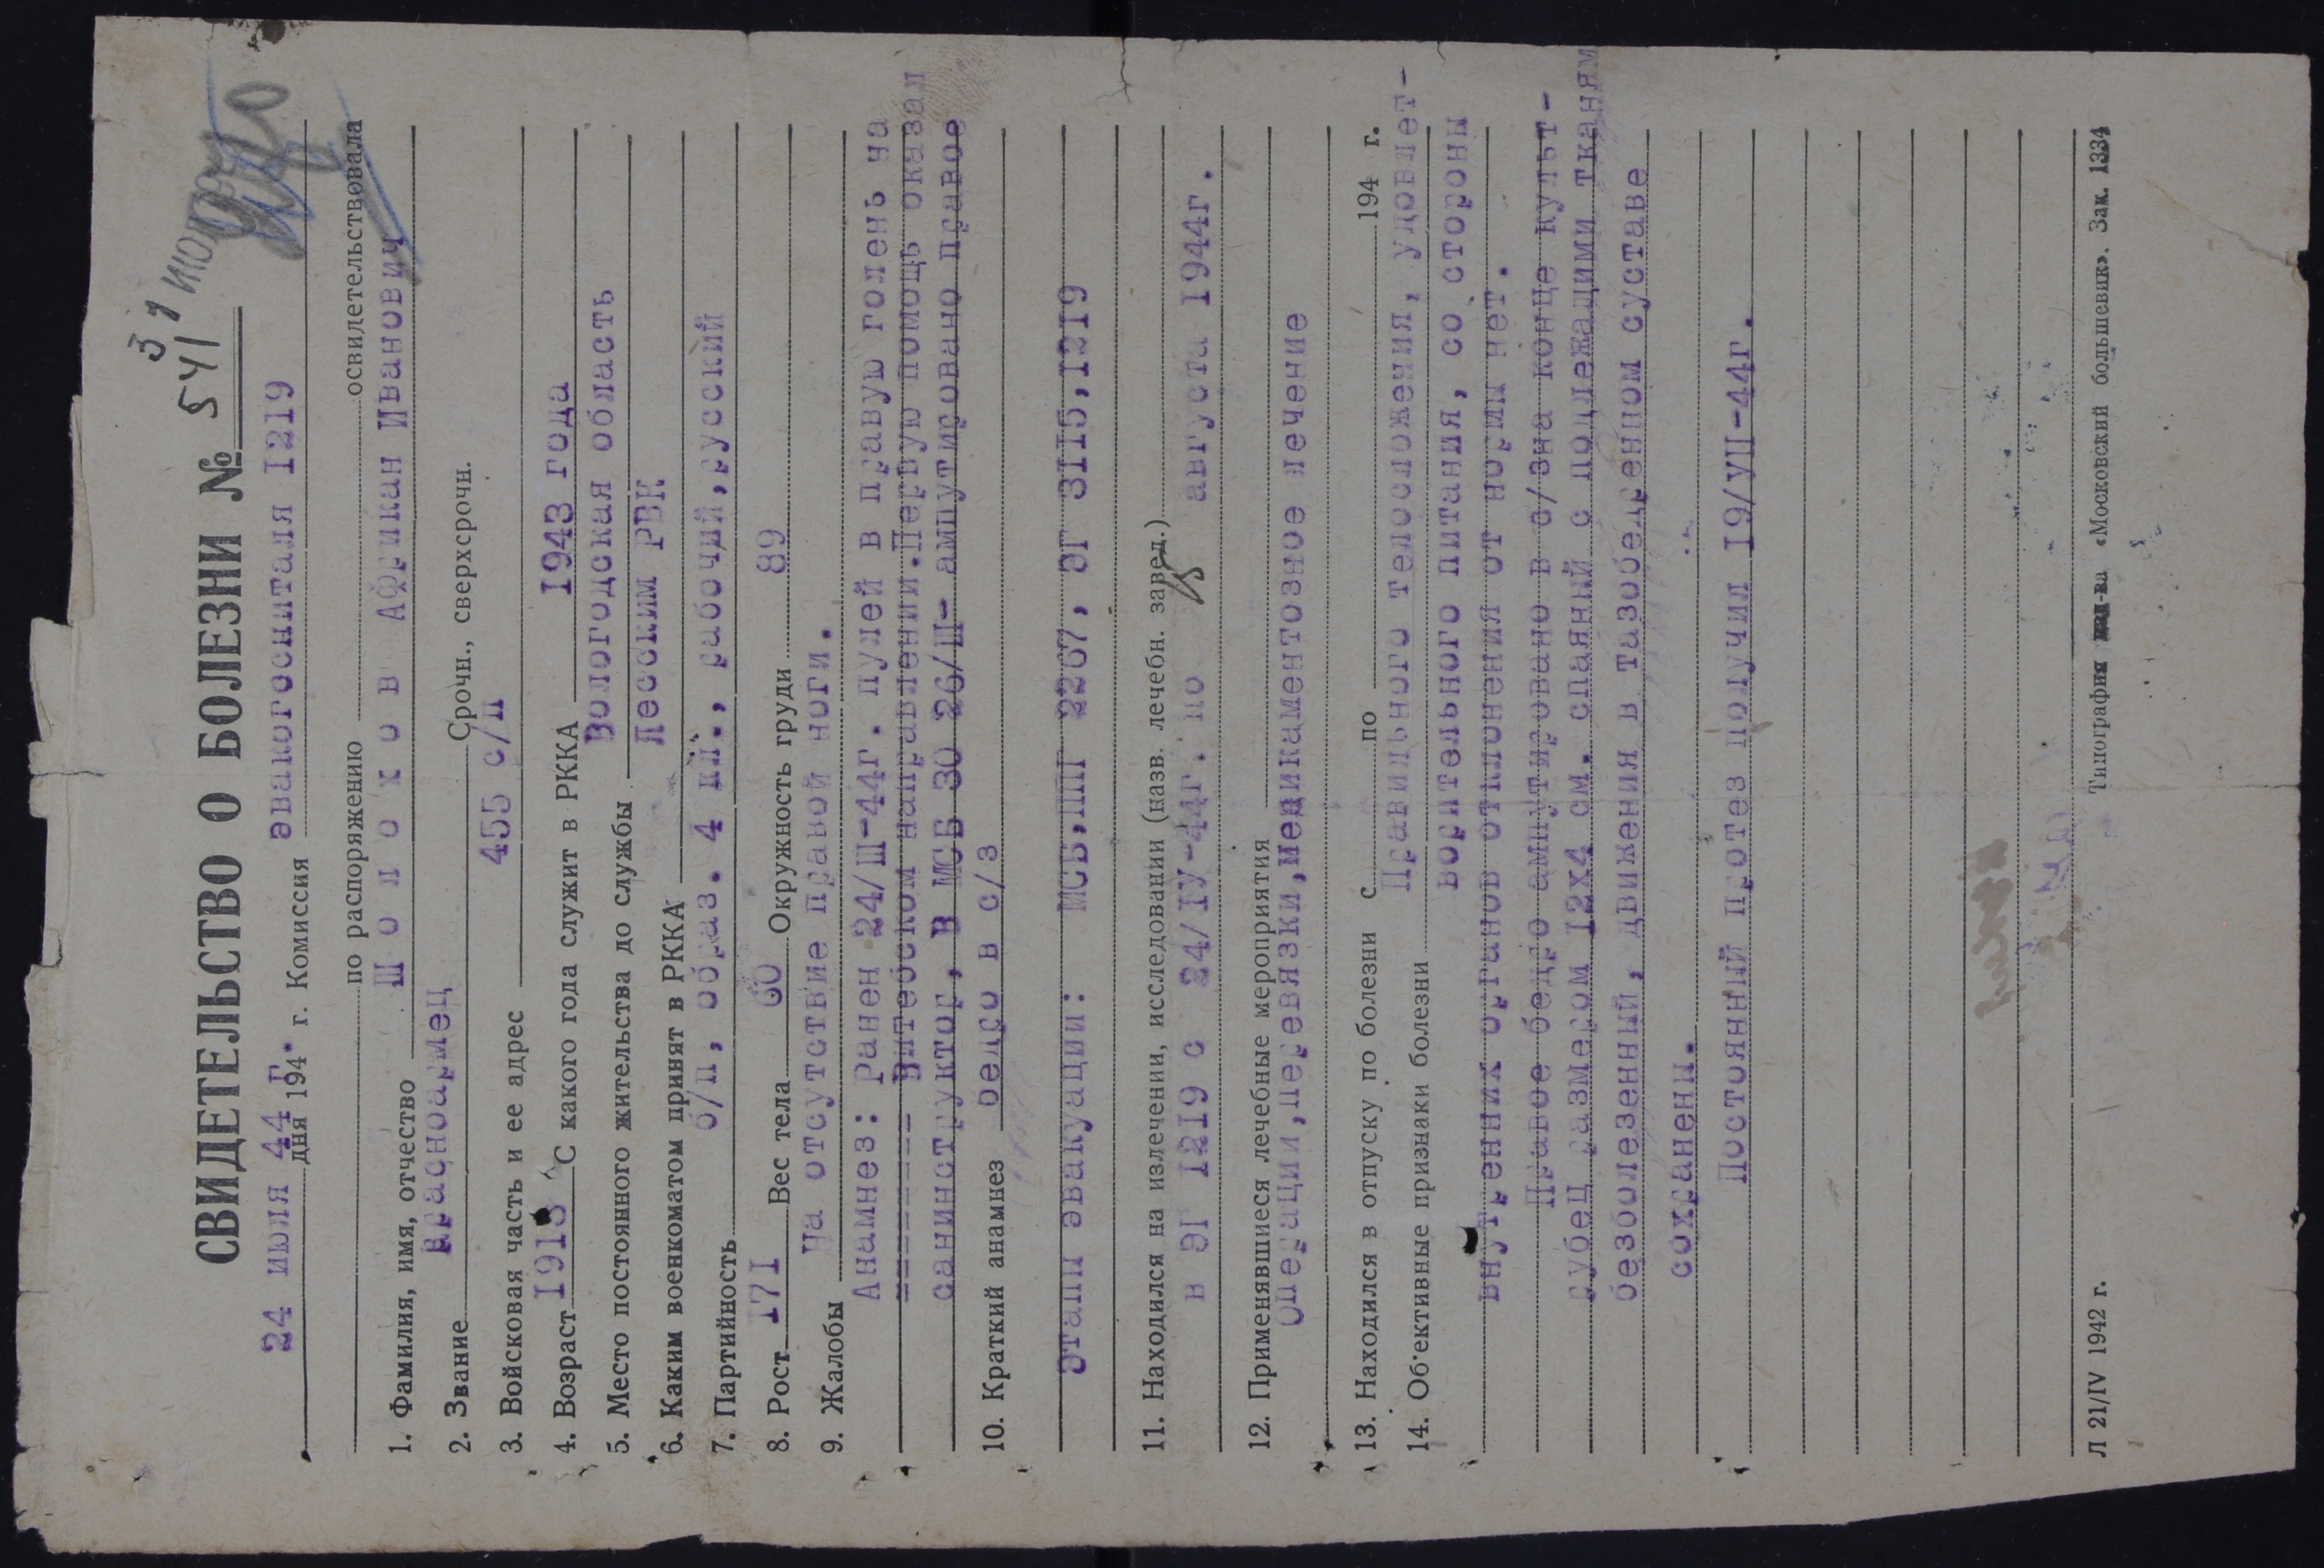 СВИДЕТЕЛЬСТВО О БОЛЕЗНИ № 541
24 июля 44 г.
дня 194 г. Комиссия эвакогоспиталя I2I9
по распоряжению освидетельствовала
1. Фамилия, имя, отчество Ш о л о х о в Африкан Иванович
2. Звание Красноармец Срочн., сверхсрочн.
3. Войсковая часть и ее адрес 455 с/п
4. Возраст С какого года служит в РККА I943 года
5. Место постоянного жительства до службы Вологодская область
6. Каким военкоматом принят в РККА Лесским РВК
7. Партийность б/п, образ. 4 кл., рабочий,русский
8. Рост I7I Вес тела 60 Окружность груди 89
9. Жалобы На отсутствие правой ноги.
Анамнез: Ранен 24/Ш-44г. пулей в правую голень на
Витебском направлении.Первую помощь оказал
санинструктор, В МСБ 30 26/Ш- ампутировано правое
10. Краткий анамнез бедро в с/з
Этапы эвакуации: МСБ,ППГ 2267, ЭГ 3II5,I2I9
11. Находился на излечении, исследовании (назв. лечебн. завед.)
в ЭГ I2I9 с 24/IУ-44г. по августа I944г.
12. Применявшиеся лечебные мероприятия
Операции,перевязки,медикаментозное лечение
13. Находился в отпуску по болезни с по 194 г.
14. Об'ективные признаки болезни Правильного телосложения, удовлет-
ворительного питания, со стороны
внутренних органов отклонения от нормы нет.
Правое бедро ампутировано в с/3на конце культ-
рубец размером I2х4 см. спаянный с подлежащими тканям
безболезенный, движения в тазобедренном суставе
сохранены.
Постоянный протез получил I9/УП-44г.
Л 21/IV 1942 г. Типография изд-ва «Московский большевик». Зак. 1334